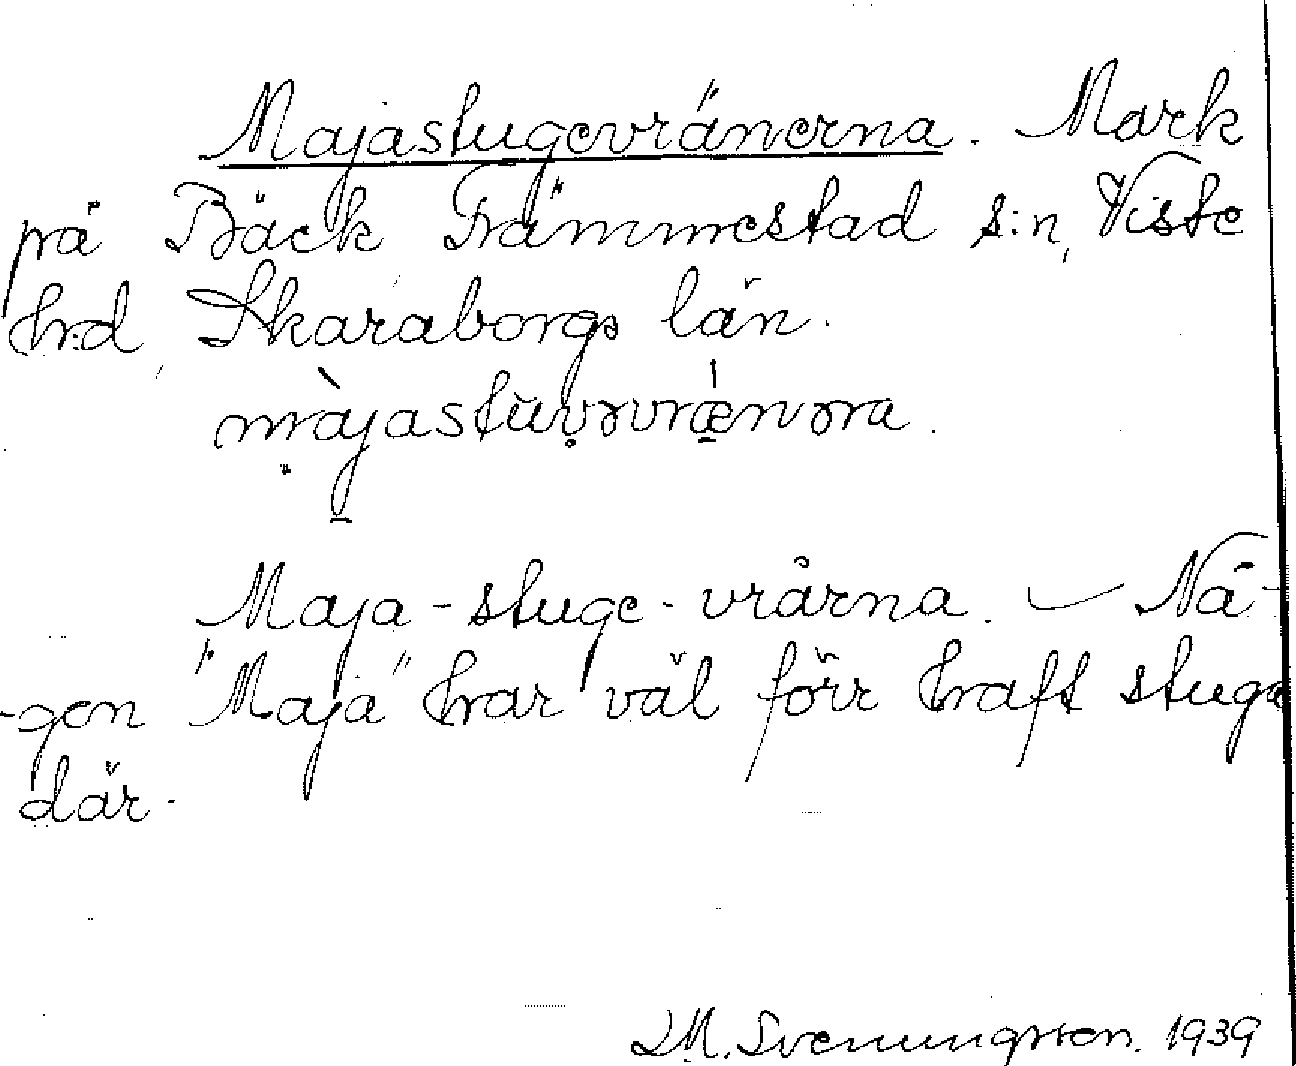 Majastugevränerna. Mark
på Bäck Främmestad s:n, Viste
hrd, Skaraborgs län.
màjastuvəvrǽnəra.
Maja-stuge-vrårna. – Nå-
-gen "Maja" har väl förr haft stuga
där.
M. Svenungsson. 1939